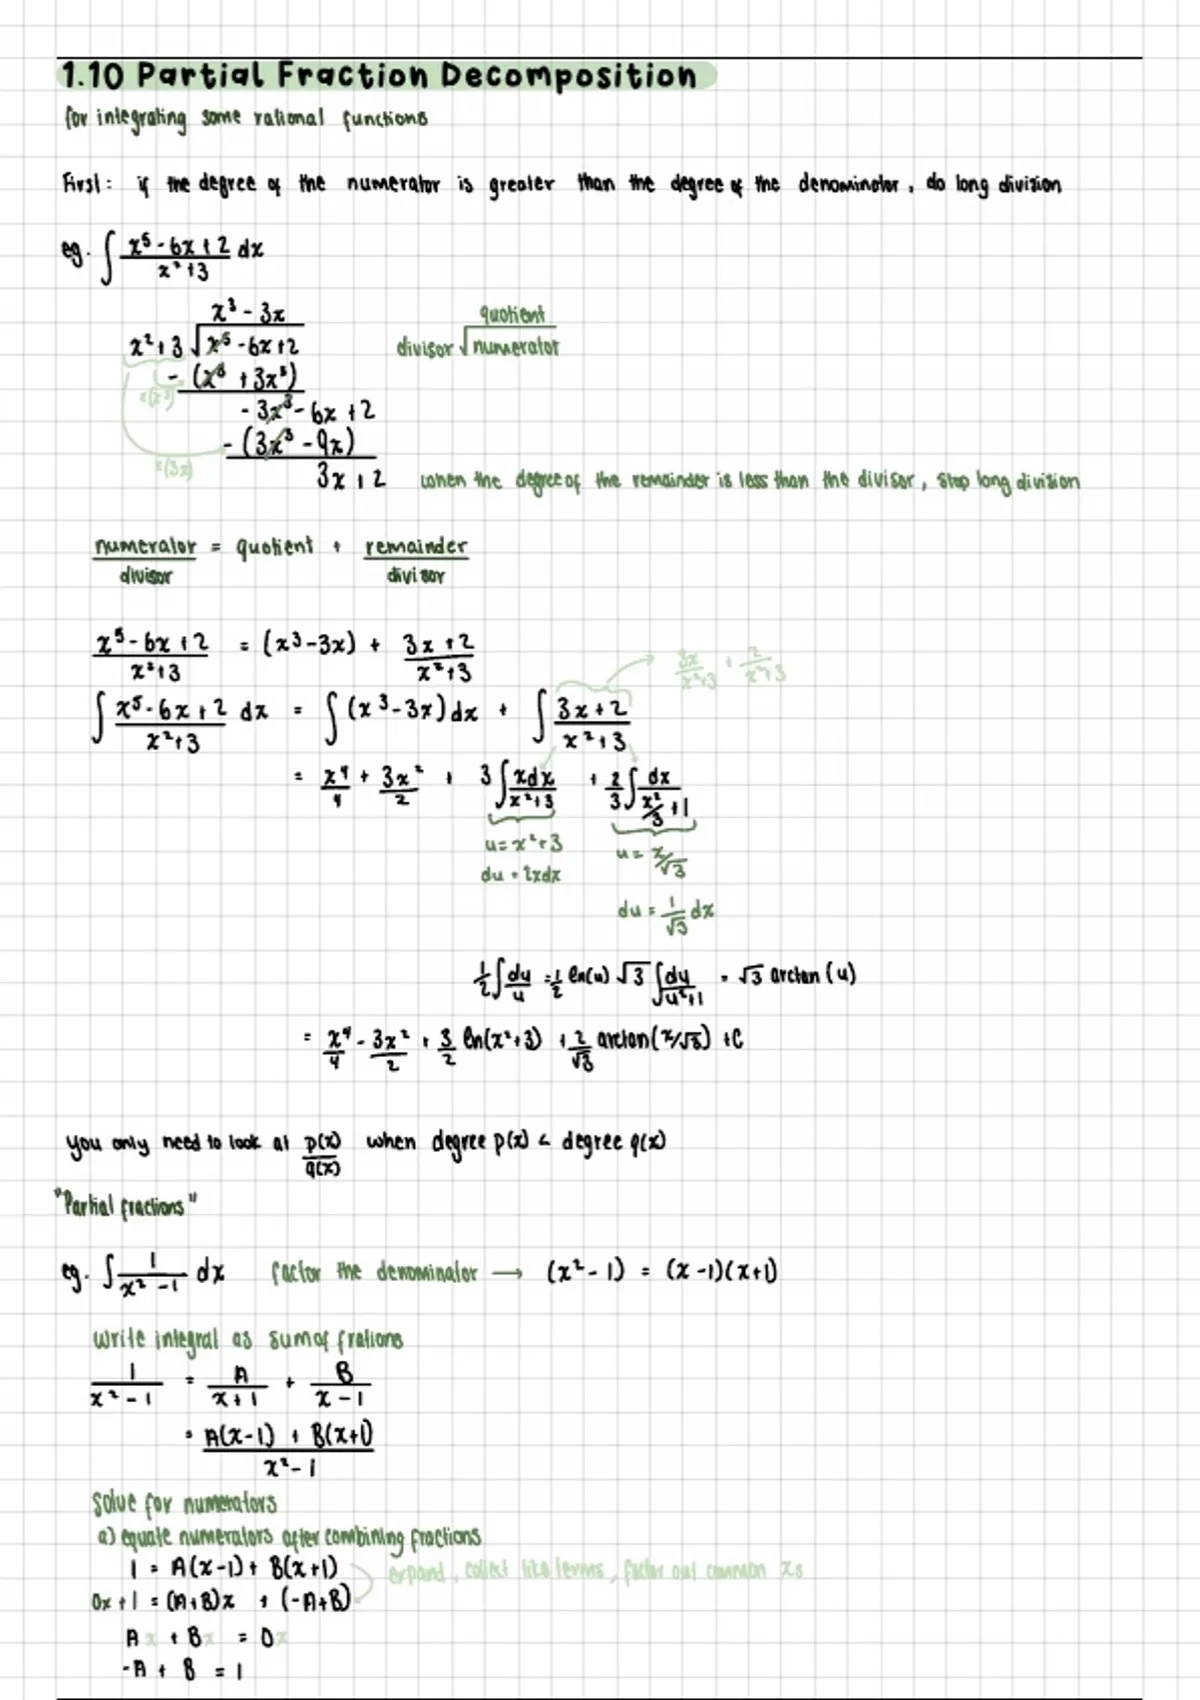 1.10 Partial Fraction Decomposition
for integrating some rational functions
First: if the degree of the numerator is greater than the degree of the denominator, do long division
eg. ∫ (x⁵ - 6x + 2)/(x² + 3) dx
x³ - 3x
quotient
x² + 3 √ x⁵ - 6x + 2
divisor √ numerator
- (x⁵ + 3x³)
x(x³)
- 3x³ - 6x + 2
- (3x³ - 9x)
x(3x)
3x + 2 when the degree of the remainder is less than the divisor, stop long division
numerator/divisor = quotient + remainder/divisor
(x⁵ - 6x + 2)/(x² + 3) = (x³ - 3x) + (3x + 2)/(x² + 3)
3x/(x² + 3) + 2/(x² + 3)
∫ (x⁵ - 6x + 2)/(x² + 3) dx = ∫ (x³ - 3x) dx + ∫ (3x + 2)/(x² + 3)
= x⁴/4 + 3x²/2 + 3 ∫ xdx/(x² + 3) + 2/3 ∫ dx/(x²/3 + 1)
u = x² + 3 u = x/√3
du = 2xdx
du = 1/√3 dx
1/2 ∫ du/u = 1/2 ln(u) √3 ∫ du/(u² + 1) = √3 arctan(u)
= x⁴/4 - 3x²/2 + 3/2 ln(x² + 3) + 2/√3 arctan(x/√3) + C
you only need to look at p(x)/q(x) when degree p(x) < degree q(x)
"Partial fractions"
eg. ∫ 1/(x² - 1) dx factor the denominator → (x² - 1) = (x - 1)(x + 1)
write integral as sum of frations
1/(x² - 1) = A/(x + 1) + B/(x - 1)
= (A(x - 1) + B(x + 1))/(x² - 1)
Solve for numerators
a) equate numerators after combining fractions
1 = A(x - 1) + B(x + 1) expand, collect like terms, factor out common xs
0x + 1 = (A + B)x + (-A + B)
Ax + Bx = 0x
-A + B = 1